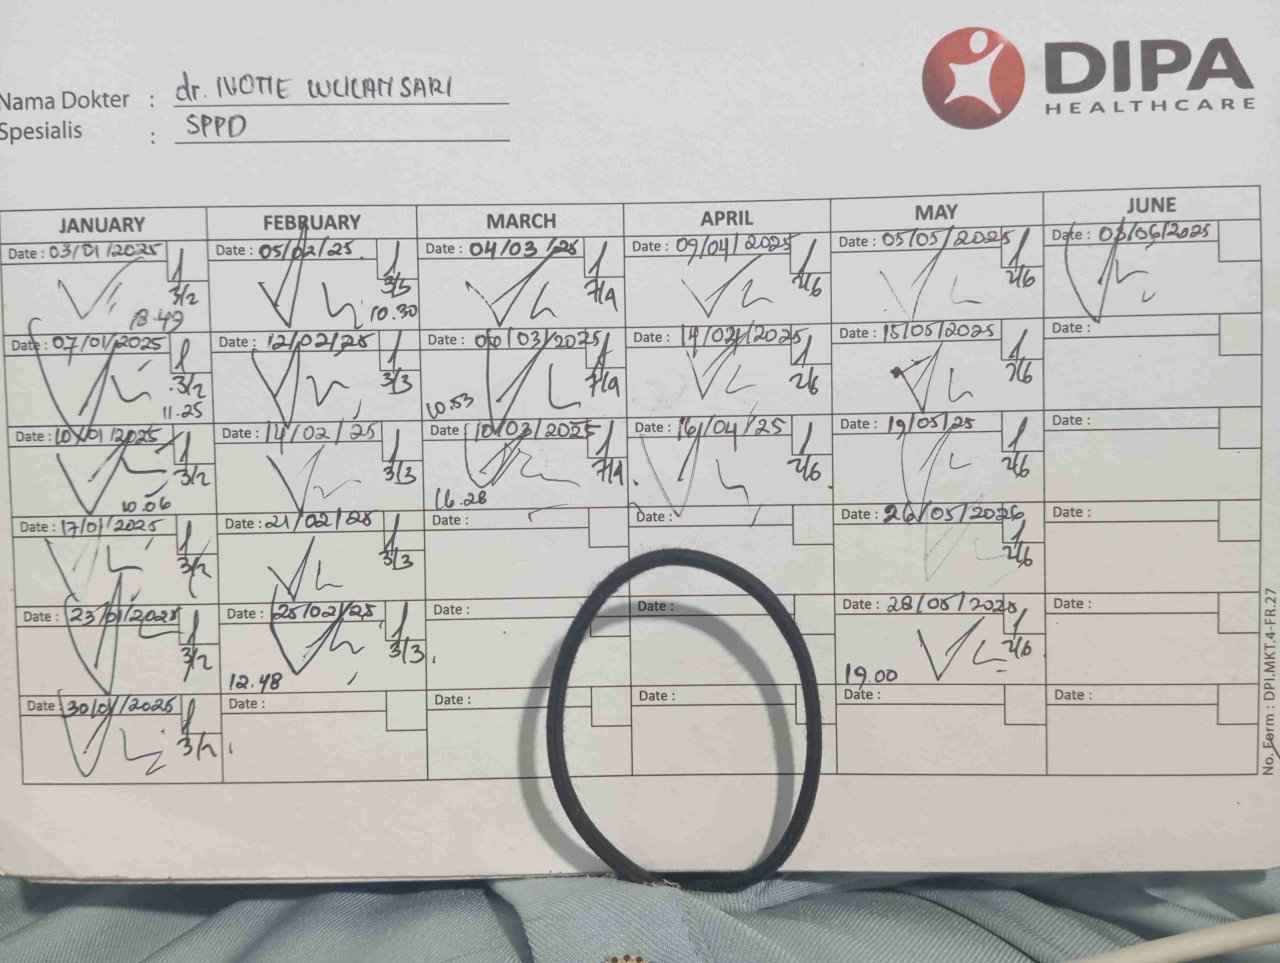 DIPA
HEALTHCARE
Nama Dokter : dr. IVOTIE WULAN SARI
Spesialis : SPPD
JANUARY FEBRUARY MARCH APRIL MAY JUNE
Date : 03/01/2025 Date : 05/02/25 Date : 04/03/25 Date : 09/04/2025 Date : 05/05/2025 Date : 03/06/2025
3/2 3/3 7/4 2/6 2/6
18.49 10.30
Date : 07/01/2025 Date : 12/02/25 Date : 06/03/2025 Date : 14/03/2025 Date : 15/05/2025 Date :
3/2 3/3 7/4 2/6 2/6
11.25 10.53
Date : 10/01/2025 Date : 14/02/25 Date : 10/03/2025 Date : 16/04/25 Date : 19/05/25 Date :
3/2 3/3 7/4 2/6 2/6
10.06 16.28
Date : 17/01/2025 Date : 21/02/25 Date : Date : Date : 26/05/2025 Date :
3/2 3/3 2/6
Date : 23/01/2025 Date : 25/02/25 Date : Date : Date : 28/05/2025 Date :
3/2 3/3 2/6
12.48 19.00
Date : 30/01/2025 Date : Date : Date : Date : Date :
3/2
No. Form : DPI.MKT.4-FR.27